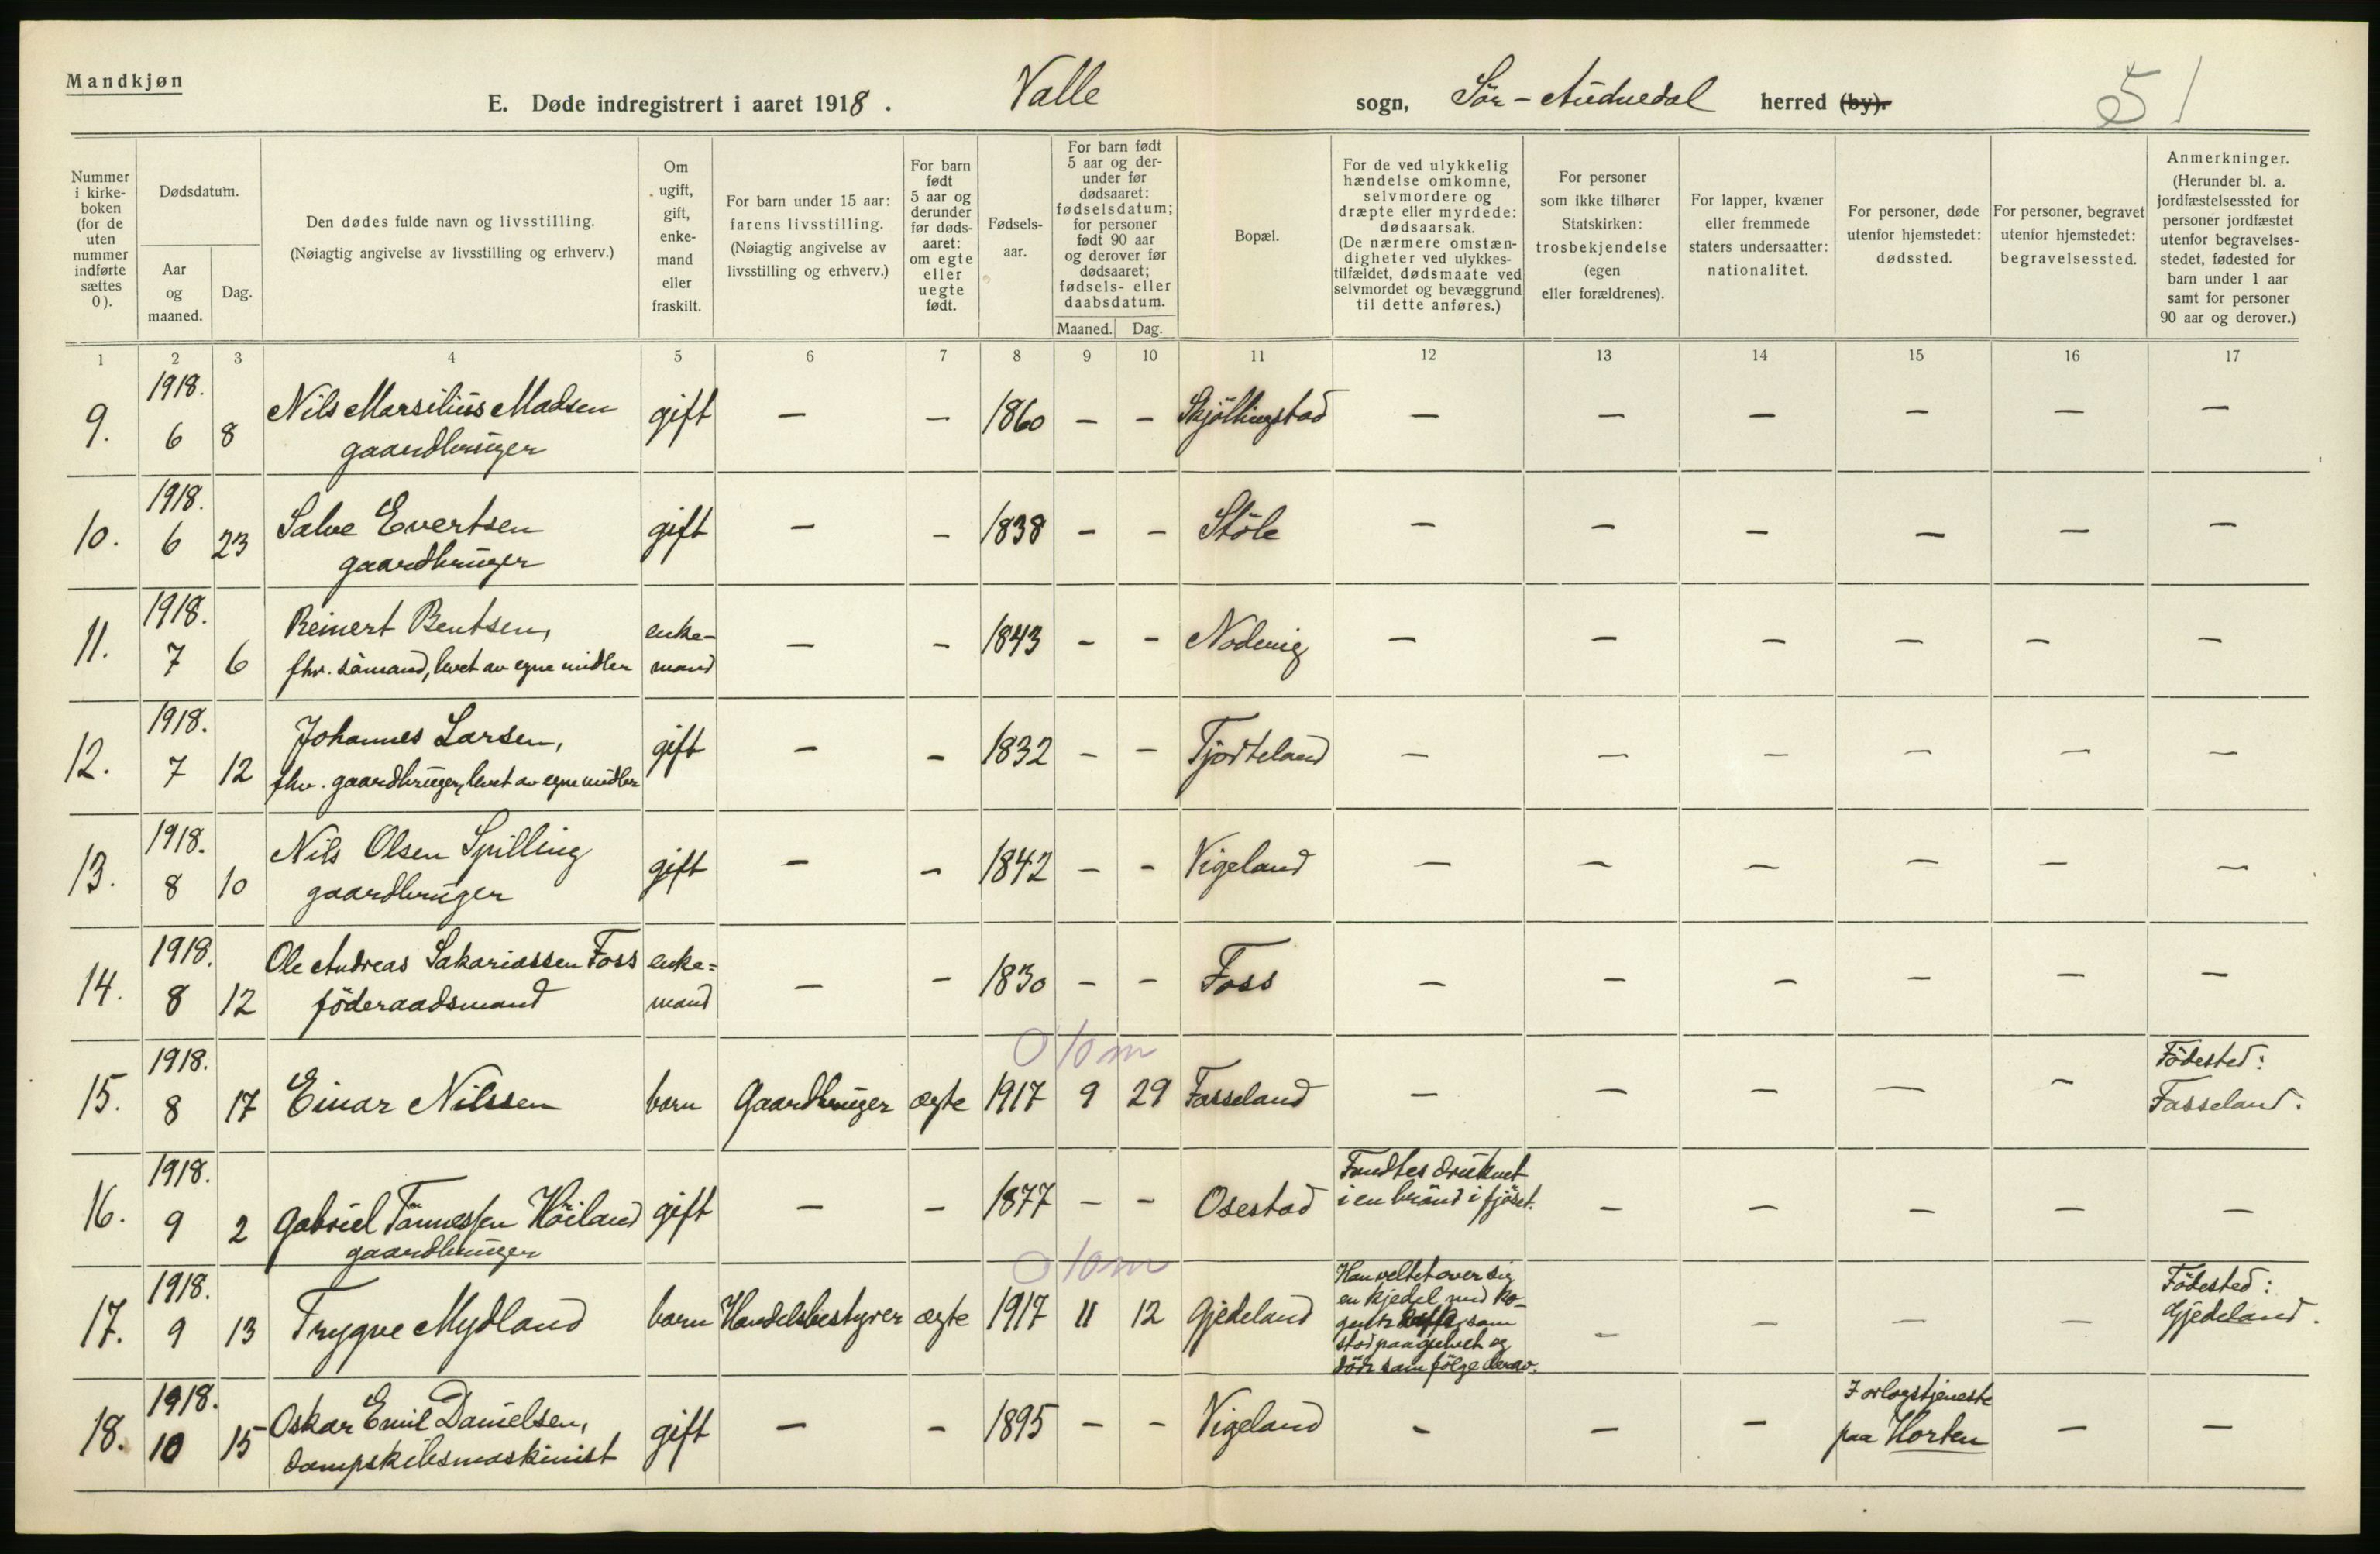 Mandkjøn
E. Døde indregistrert i aaret 1918. Valle sogn, Sör-Audnedal herred (by). 51
Nummer i kirke- boken (for de uten nummer indførte sættes 0).
Dødsdatum.
Aar og maaned.
Dag.
Den dødes fulde navn og livsstilling.
(Nøiagtig angivelse av livsstilling og erhverv.)
Om ugift, gift, enke- mand eller fraskilt.
For barn under 15 aar: farens livsstilling. (Nøiagtig angivelse av livsstilling og erhverv.)
For barn født 5 aar og derunder før døds- aaret: om egte eller uegte født.
Fødsels- aar.
For barn født 5 aar og der- under før dødsaaret: fødselsdatum; for personer født 90 aar og derover før dødsaaret; fødsels- eller daabsdatum.
Maaned. Dag.
Bopæl.
For de ved ulykkelig hændelse omkomne, selvmordere og dræpte eller myrdede: dødsaarsak. (De nærmere omstæn- digheter ved ulykkes- tilfældet, dødsmaate ved selvmordet og bevæggrund til dette anføres.)
For personer som ikke tilhører Statskirken: trosbekjendelse (egen eller forældrenes).
For lapper, kvæner eller fremmede staters undersaatter: nationalitet.
For personer, døde utenfor hjemstedet: dødssted.
For personer, begravet utenfor hjemstedet: begravelsessted.
Anmerkninger. (Herunder bl. a. jordfæstelsessted for personer jordfæstet utenfor begravelses- stedet, fødested for barn under 1 aar samt for personer 90 aar og derover.)
1 2 3 4 5 6 7 8 9 10 11 12 13 14 15 16 17
9. 1918. 6 8 Nils Marsilius Madsen gaardbruger gift — — 1860 — — Skjöllingstad — — — — — —
10. 1918. 6 23 Salve Evertsen gaardbruger gift — — 1838 — — Stöle — — — — — —
11. 1918. 7 6 Reinert Bentsen, fhv. sömand, levet av egne midler enke- mand — — 1843 — — Nodevig — — — — — —
12. 1918. 7 12 Johannes Larsen, fhv. gaardbruger, levet av egne midler gift — — 1832 — — Tjorteland — — — — — —
13. 1918. 8 10 Nils Olsen Spilling gaardbruger gift — — 1842 — — Vigeland — — — — — —
14. 1918. 8 12 Ole Andreas Sakariassen Foss föderaadsmand enke= mand — — 1830 — — Foss — — — — — —
0 10 m
15. 1918. 8 17 Einar Nilssen barn Gaardbruger ægte 1917 9 29 Fasseland — — — — — Födested: Fasseland.
16. 1918. 9 2 Gabriel Tönnessen Höiland gaardbruger gift — — 1877 — — Osestad Fandtes druknet i en brönd i fjöset. — — — — —
0 10 m
17. 1918. 9 13 Trygve Mydland barn Handelsbestyrer ægte 1917 11 12 Gjedeland Han veltet over sig en kjedel med ko- gende kaffe, som stod paa gulvet og döde som fölge derav. — — — — Födested: Gjedeland.
18. 1918. 10 15 Oskar Emil Danielsen, dampskibsmaskinist gift — — 1895 — — Vigeland — — — I orlogstjeneste paa Horten — —